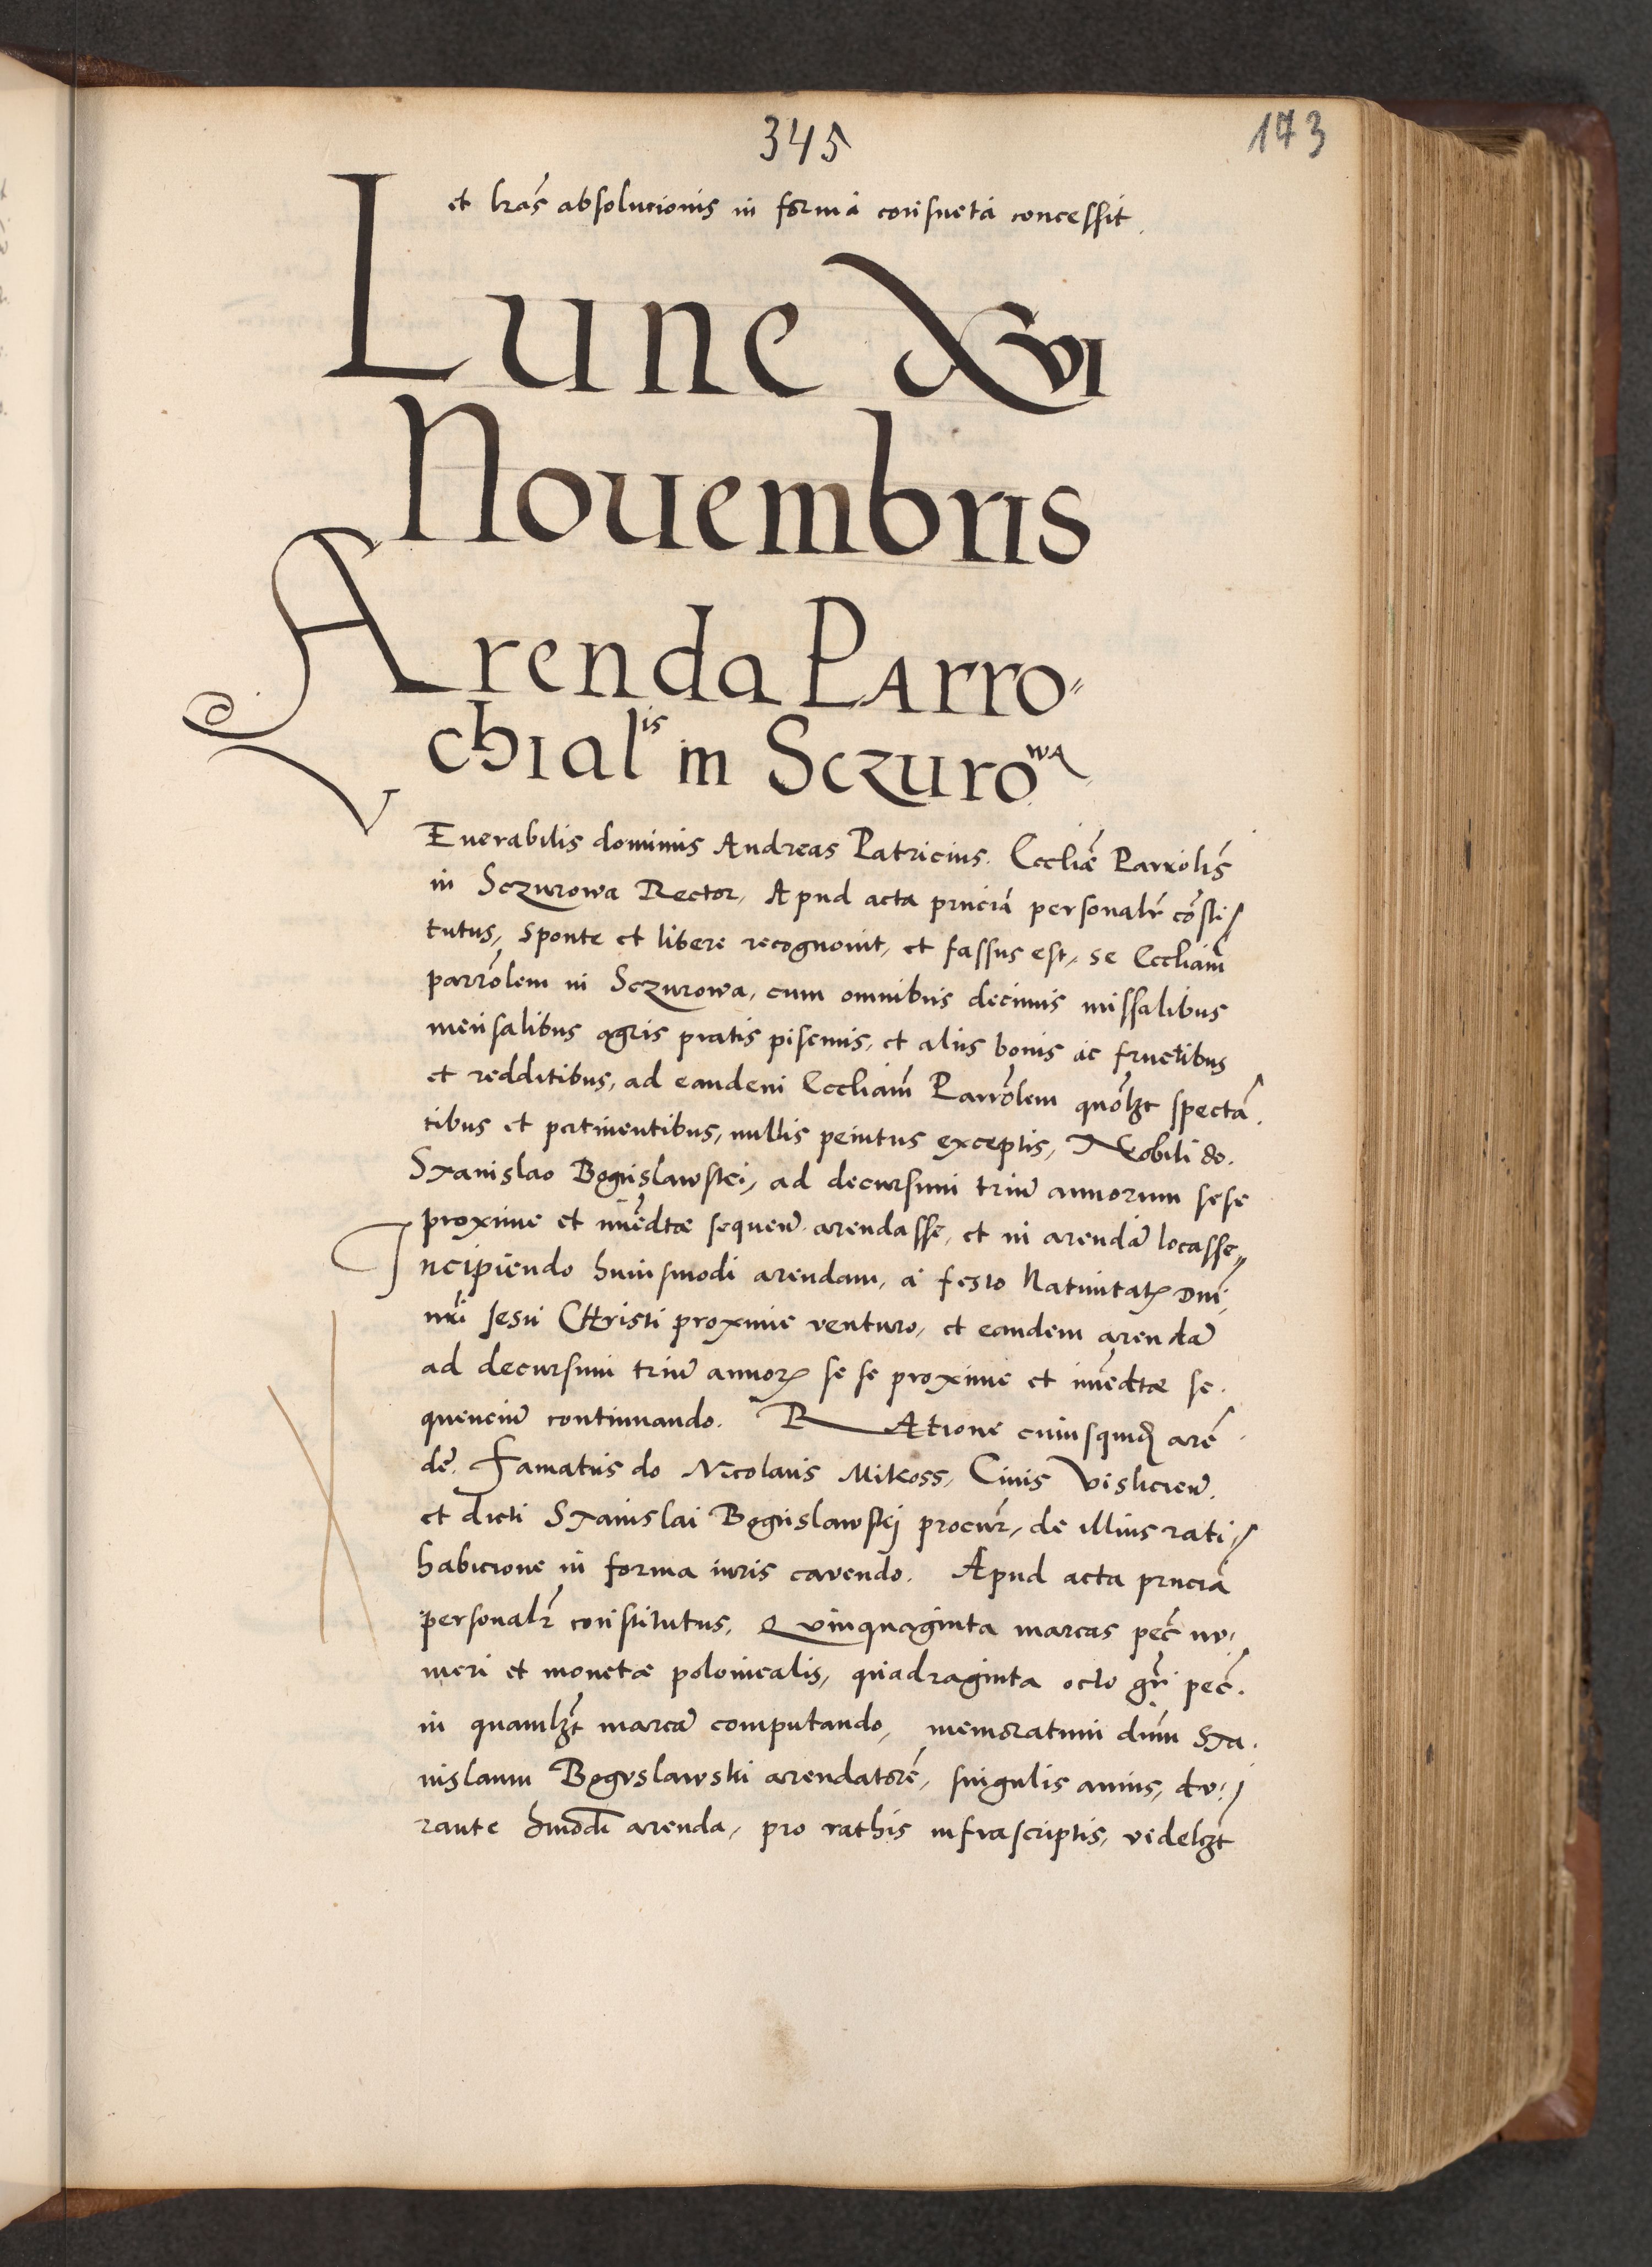 345
173
et lr̃as absolucionis in forma consueta concessit.
Lune XVI
Nouembris
Arenda Parro⸗
chialis in Sczurowa
VEnerabilis dominus Andreas Patricius. Eccliæ̃ Parrolĩs
in Sczurowa Rector, Apud acta pñcia personalr̃ cõsti/
tutus, sponte et libere recognouit, et fassus est, se Eccliam̃
parrõlem in Sczurowa, cum omnibus decimis missalibus
mensalibus agris pratis piscinis, et aliis bonis ac fructibus
et redditibus, ad eandem Eccliam̃ Parrõlem quõlꝫt spectã.
tibus et pertinentibus, nullis penitus exceptis, Nobili do.
Stanislao Boguslawski, ad decursum trium̃ annorum sese
proxime et im̃edtae sequen̄. arendasse, et in arendã locasse,,
Incipiendo huiusmodi arendam, a festo Natiuitatꝭ Dnĩ
nri Jesu Christi proxime venturo, et eandem arendã
ad decursum triũ annorꝝ se se proxime et im̃edtae se.
quenciũ continuando. RAtione cuiusquidꝫ arẽ
dẽ. Famatus do Nicolaus Mikoss, Ciuis Vislicien̄.
et dicti Stanislai Boguslawskj procur̃, de illius rati//
habicione in forma iuris cavendo. Apud acta pñcia
personalr̃ constitutus, Quinquaginta marcas pec̃ nu,
meri et monetae polonicalis, quadraginta octo gr̃ pec̃.
in quamlꝫt marcã computando, memoratum dnm̃ Sta.
nislaum Boguslawski arendatorẽ, singulis annis, du,
rante hmõdi arenda, pro rathis infrascriptis, videlꝫt